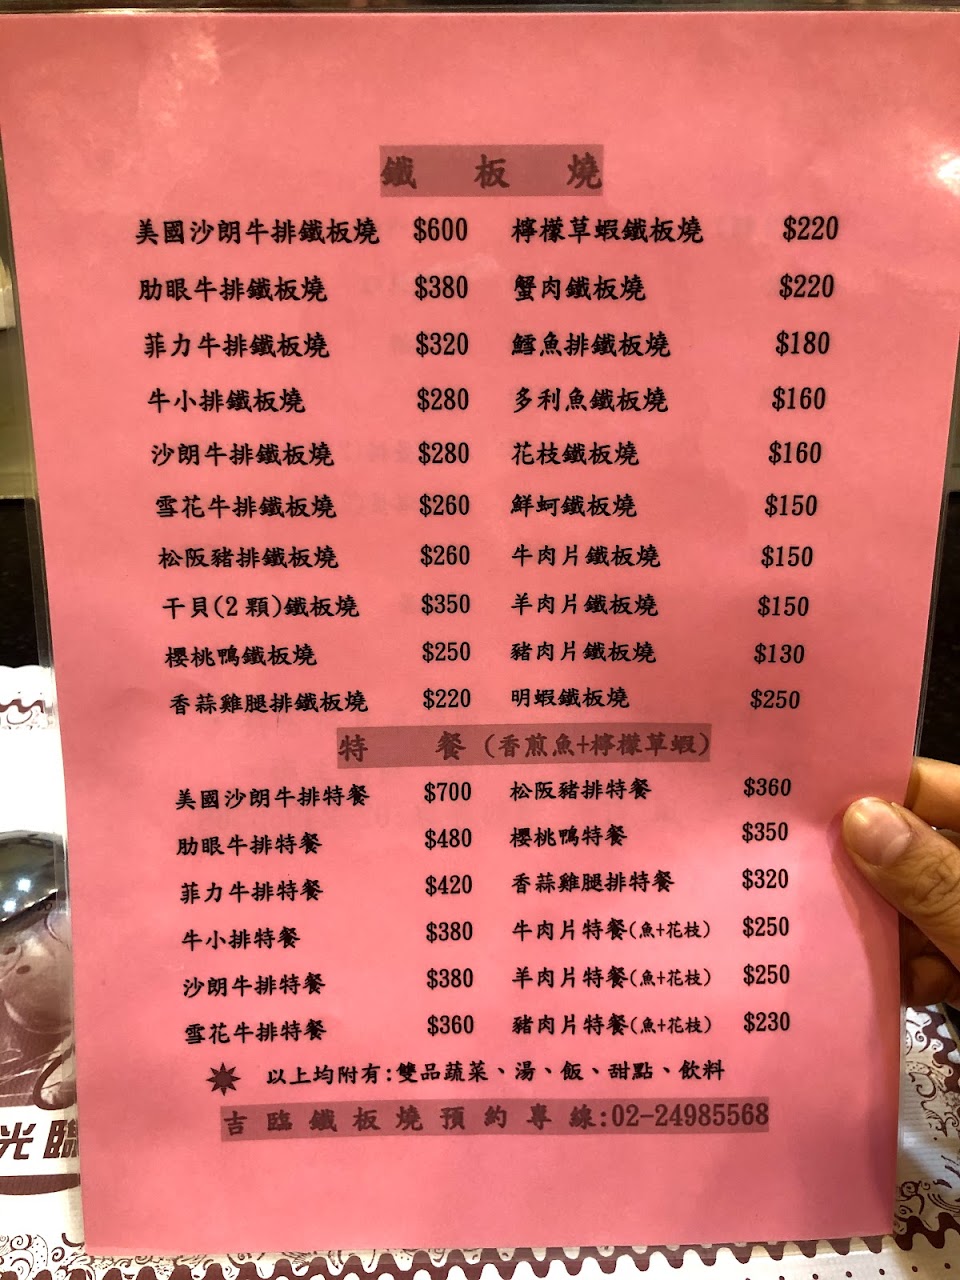 鐵 板 燒
美國沙朗牛排鐵板燒 $600 檸檬草蝦鐵板燒 $220
肋眼牛排鐵板燒 $380 蟹肉鐵板燒 $220
菲力牛排鐵板燒 $320 鱈魚排鐵板燒 $180
牛小排鐵板燒 $280 多利魚鐵板燒 $160
沙朗牛排鐵板燒 $280 花枝鐵板燒 $160
雪花牛排鐵板燒 $260 鮮蚵鐵板燒 $150
松阪豬排鐵板燒 $260 牛肉片鐵板燒 $150
干貝(2 顆)鐵板燒 $350 羊肉片鐵板燒 $150
櫻桃鴨鐵板燒 $250 豬肉片鐵板燒 $130
香蒜雞腿排鐵板燒 $220 明蝦鐵板燒 $250
特 餐 (香煎魚+檸檬草蝦)
美國沙朗牛排特餐 $700 松阪豬排特餐 $360
肋眼牛排特餐 $480 櫻桃鴨特餐 $350
菲力牛排特餐 $420 香蒜雞腿排特餐 $320
牛小排特餐 $380 牛肉片特餐(魚+花枝) $250
沙朗牛排特餐 $380 羊肉片特餐(魚+花枝) $250
雪花牛排特餐 $360 豬肉片特餐(魚+花枝) $230
以上均附有:雙品蔬菜、湯、飯、甜點、飲料
吉 臨 鐵 板 燒 預 約 專 線:02-24985568
光臨